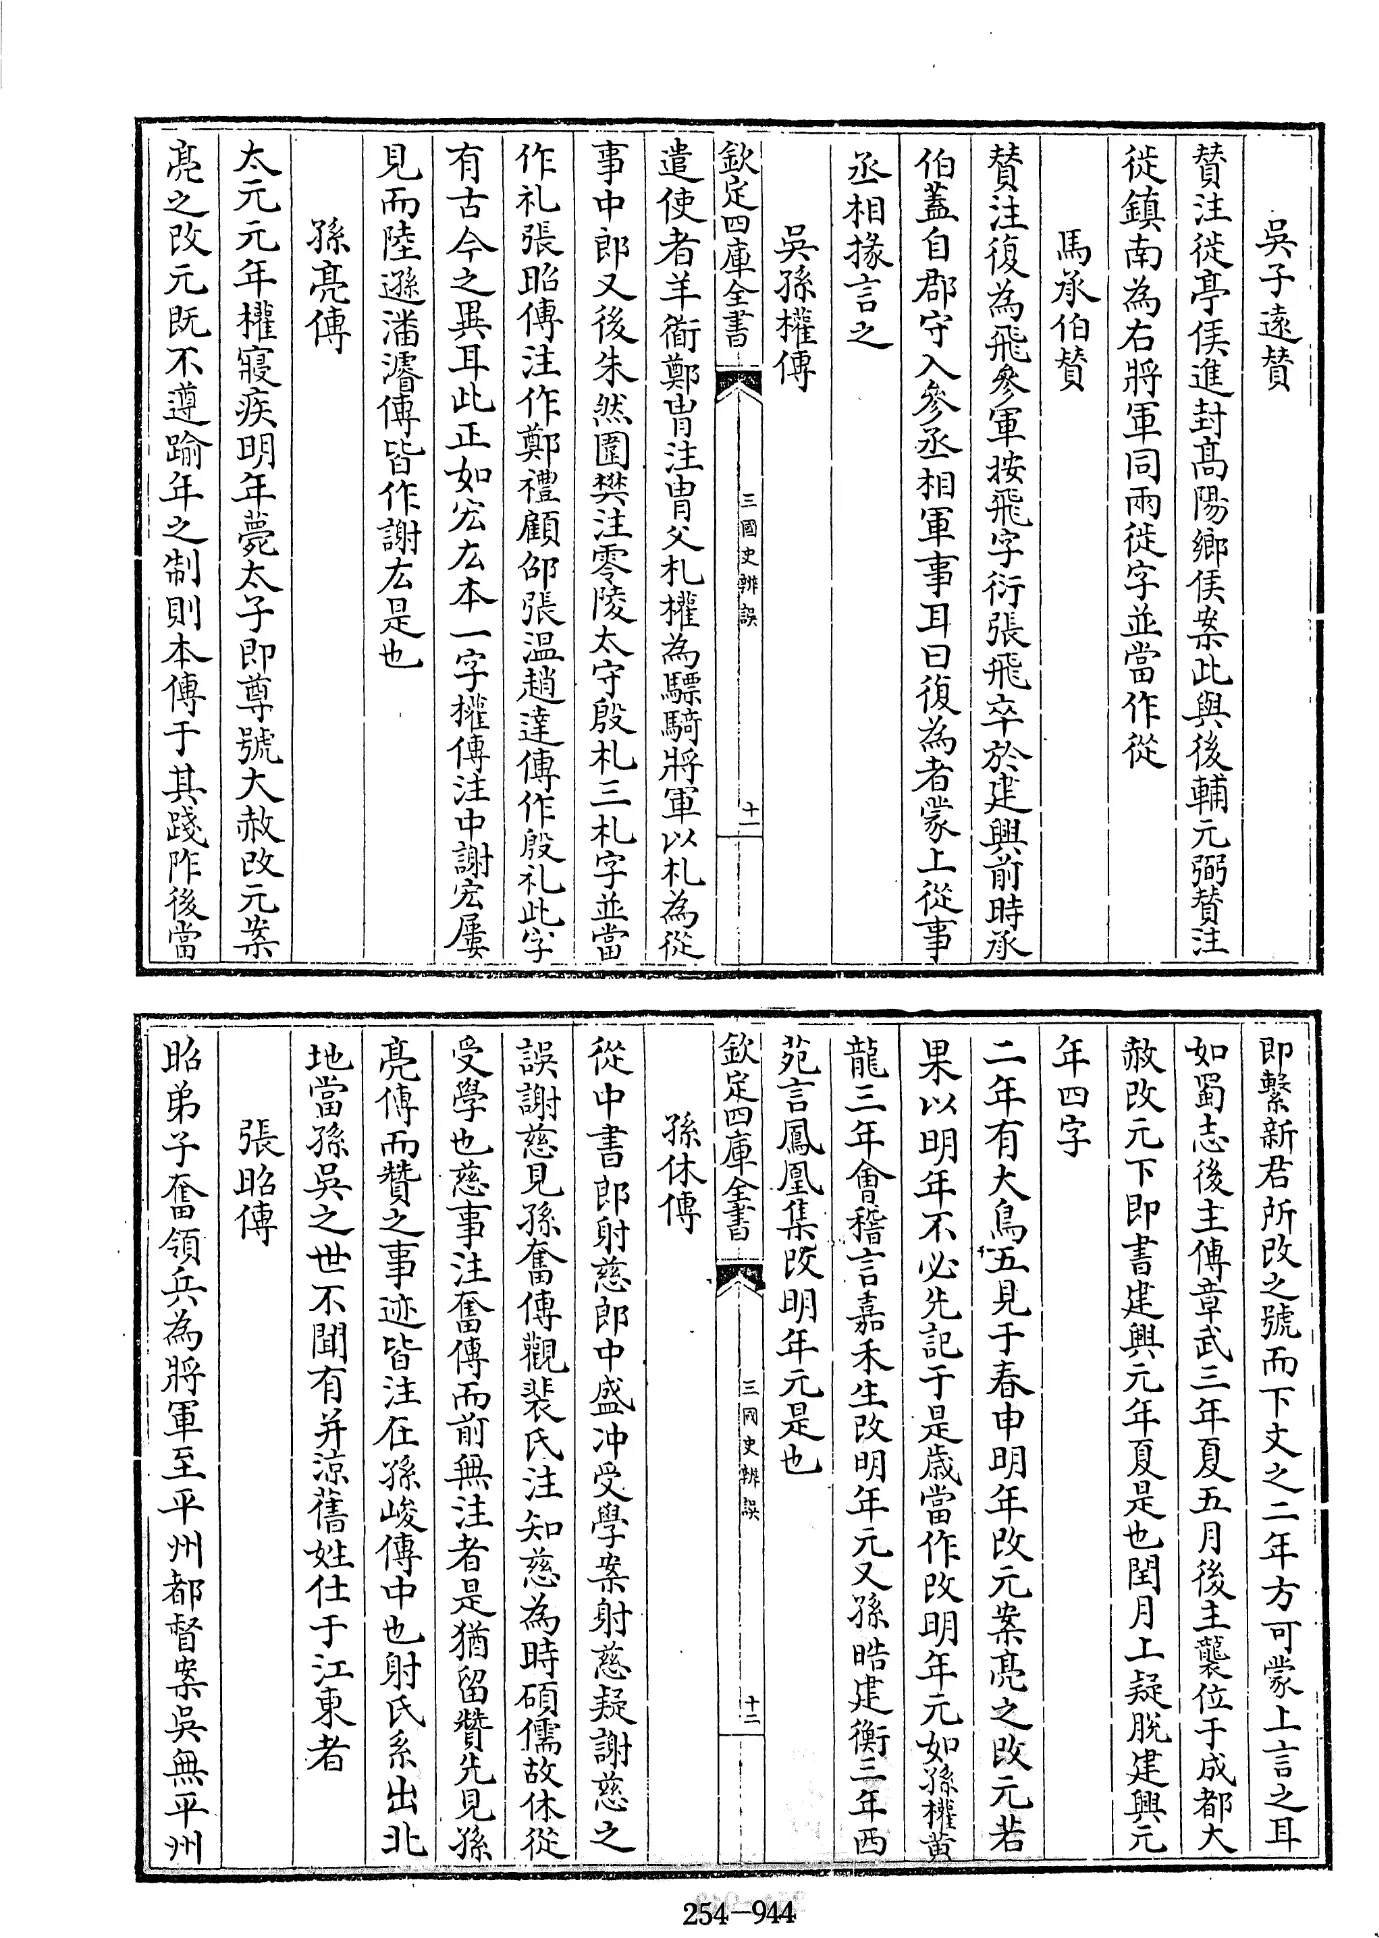 吳子遠贊
贊注徙亭侯進封髙陽鄉侯案此與後輔元弼贊注
徙鎮南為右將軍同兩徙字並當作從
馬承伯贊
贊注復為飛參軍按飛字衍張飛卒於建興前時承
伯蓋自郡守入參丞相軍事耳曰復為者蒙上從事
丞相掾言之
吳孫權傳
欽定四庫全書
三國史辨誤
十一
遣使者羊衜鄭胄注胄父札權為驃騎將軍以札為從
事中郎又後朱然圍樊注零陵太守殷札三札字並當
作礼張昭傳注作鄭禮顧邵張温趙達傳作殷礼此字
有古今之異耳此正如宏厷本一字權傳注中謝宏屢
見而陸遜潘濬傳皆作謝厷是也
孫亮傳
太元元年權寢疾明年薨太子即尊號大赦改元案
亮之改元既不遵踰年之制則本傳于其踐阼後當
即繫新君所改之號而下文之二年方可蒙上言之耳
如蜀志後主傳章武三年夏五月後主襲位于成都大
赦改元下即書建興元年夏是也閏月上疑脫建興元
年四字
二年有大鳥五見于春申明年改元案亮之改元若
果以明年不必先記于是歳當作改明年元如孫權黄
龍三年會稽言嘉禾生改明年元又孫晧建衡三年西
苑言鳳凰集改明年元是也
欽定四庫全書
三國史辨誤
十二
孫休傳
從中書郎射慈郎中盛冲受學案射慈疑謝慈之
誤謝慈見孫奮傳觀裴氏注知慈為時碩儒故休從
受學也慈事注奮傳而前無注者是猶留贊先見孫
亮傳而贊之事迹皆注在孫峻傳中也射氏系出北
地當孫吳之世不聞有并涼舊姓仕于江東者
張昭傳
昭弟子奮領兵為將軍至平州都督案吳無平州
254-944